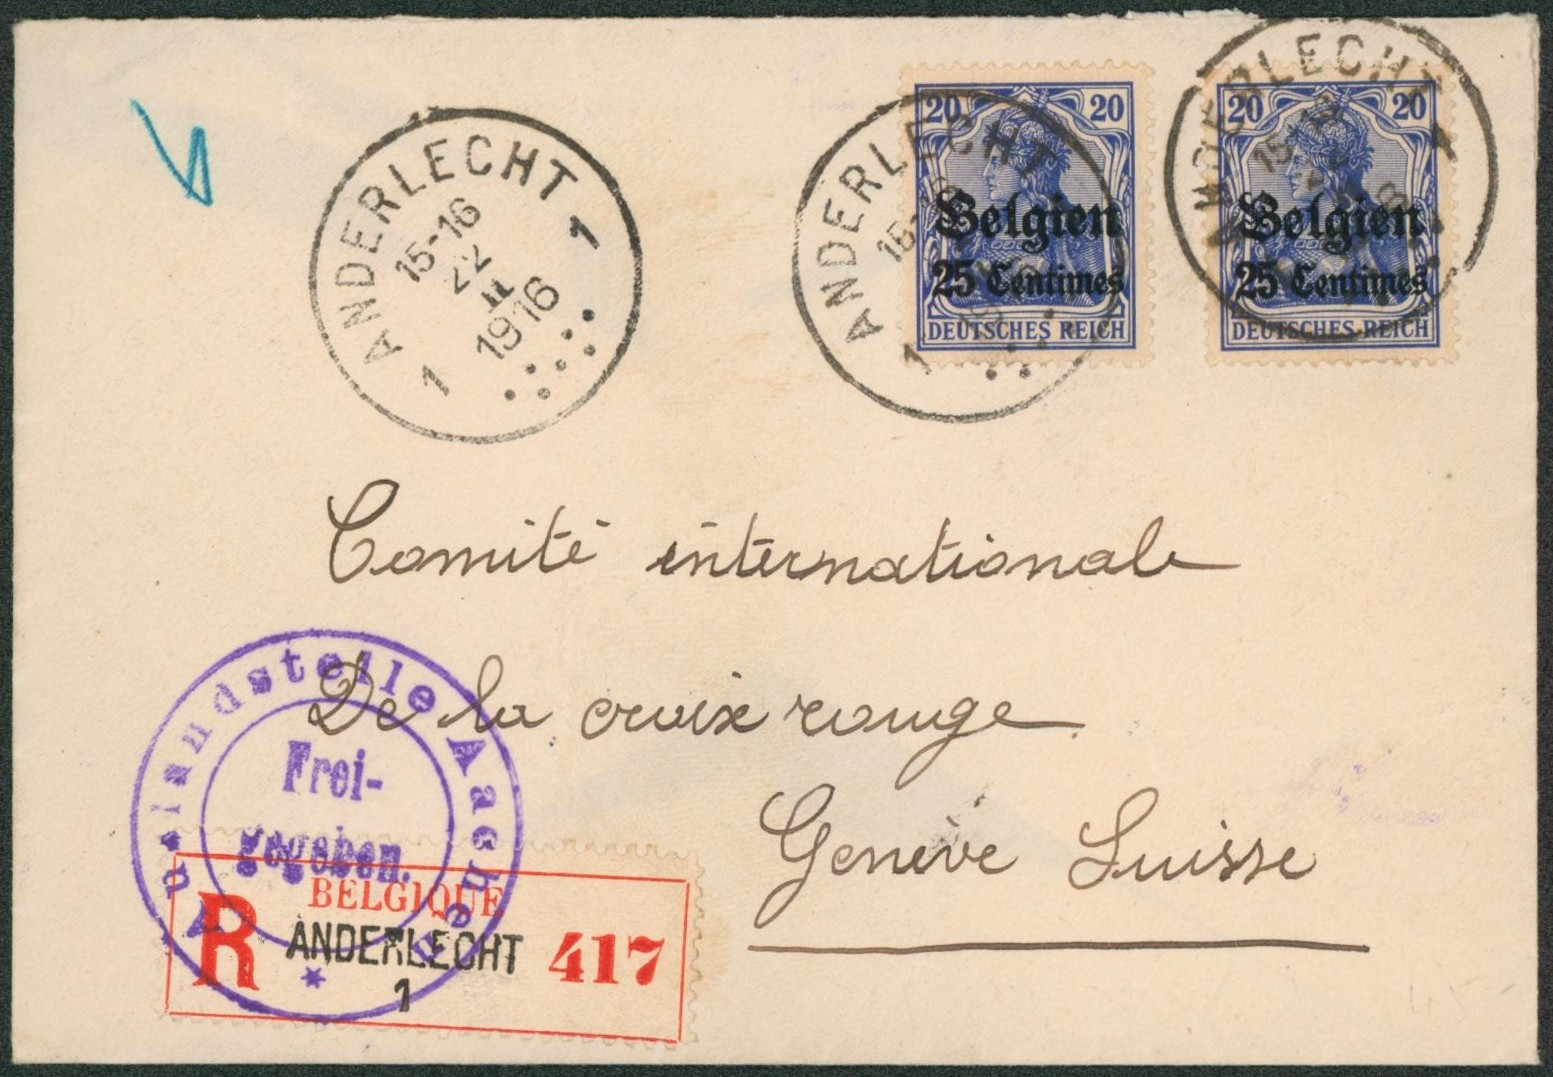 ANDERLECHT 1
15-16
22
II
1916
1
ANDERLECHT
15-
1
20 20
Belgien
25 Centimes
DEUTSCHES REICH
ANDERLECHT 1
15-
20 20
Belgien
25 Centimes
DEUTSCHES REICH
Comité internationale
De la croix rouge
Genève Suisse
Auslandstelle Aachen
Frei-
gegeben.
BELGIQUE
R ANDERLECHT 417
1